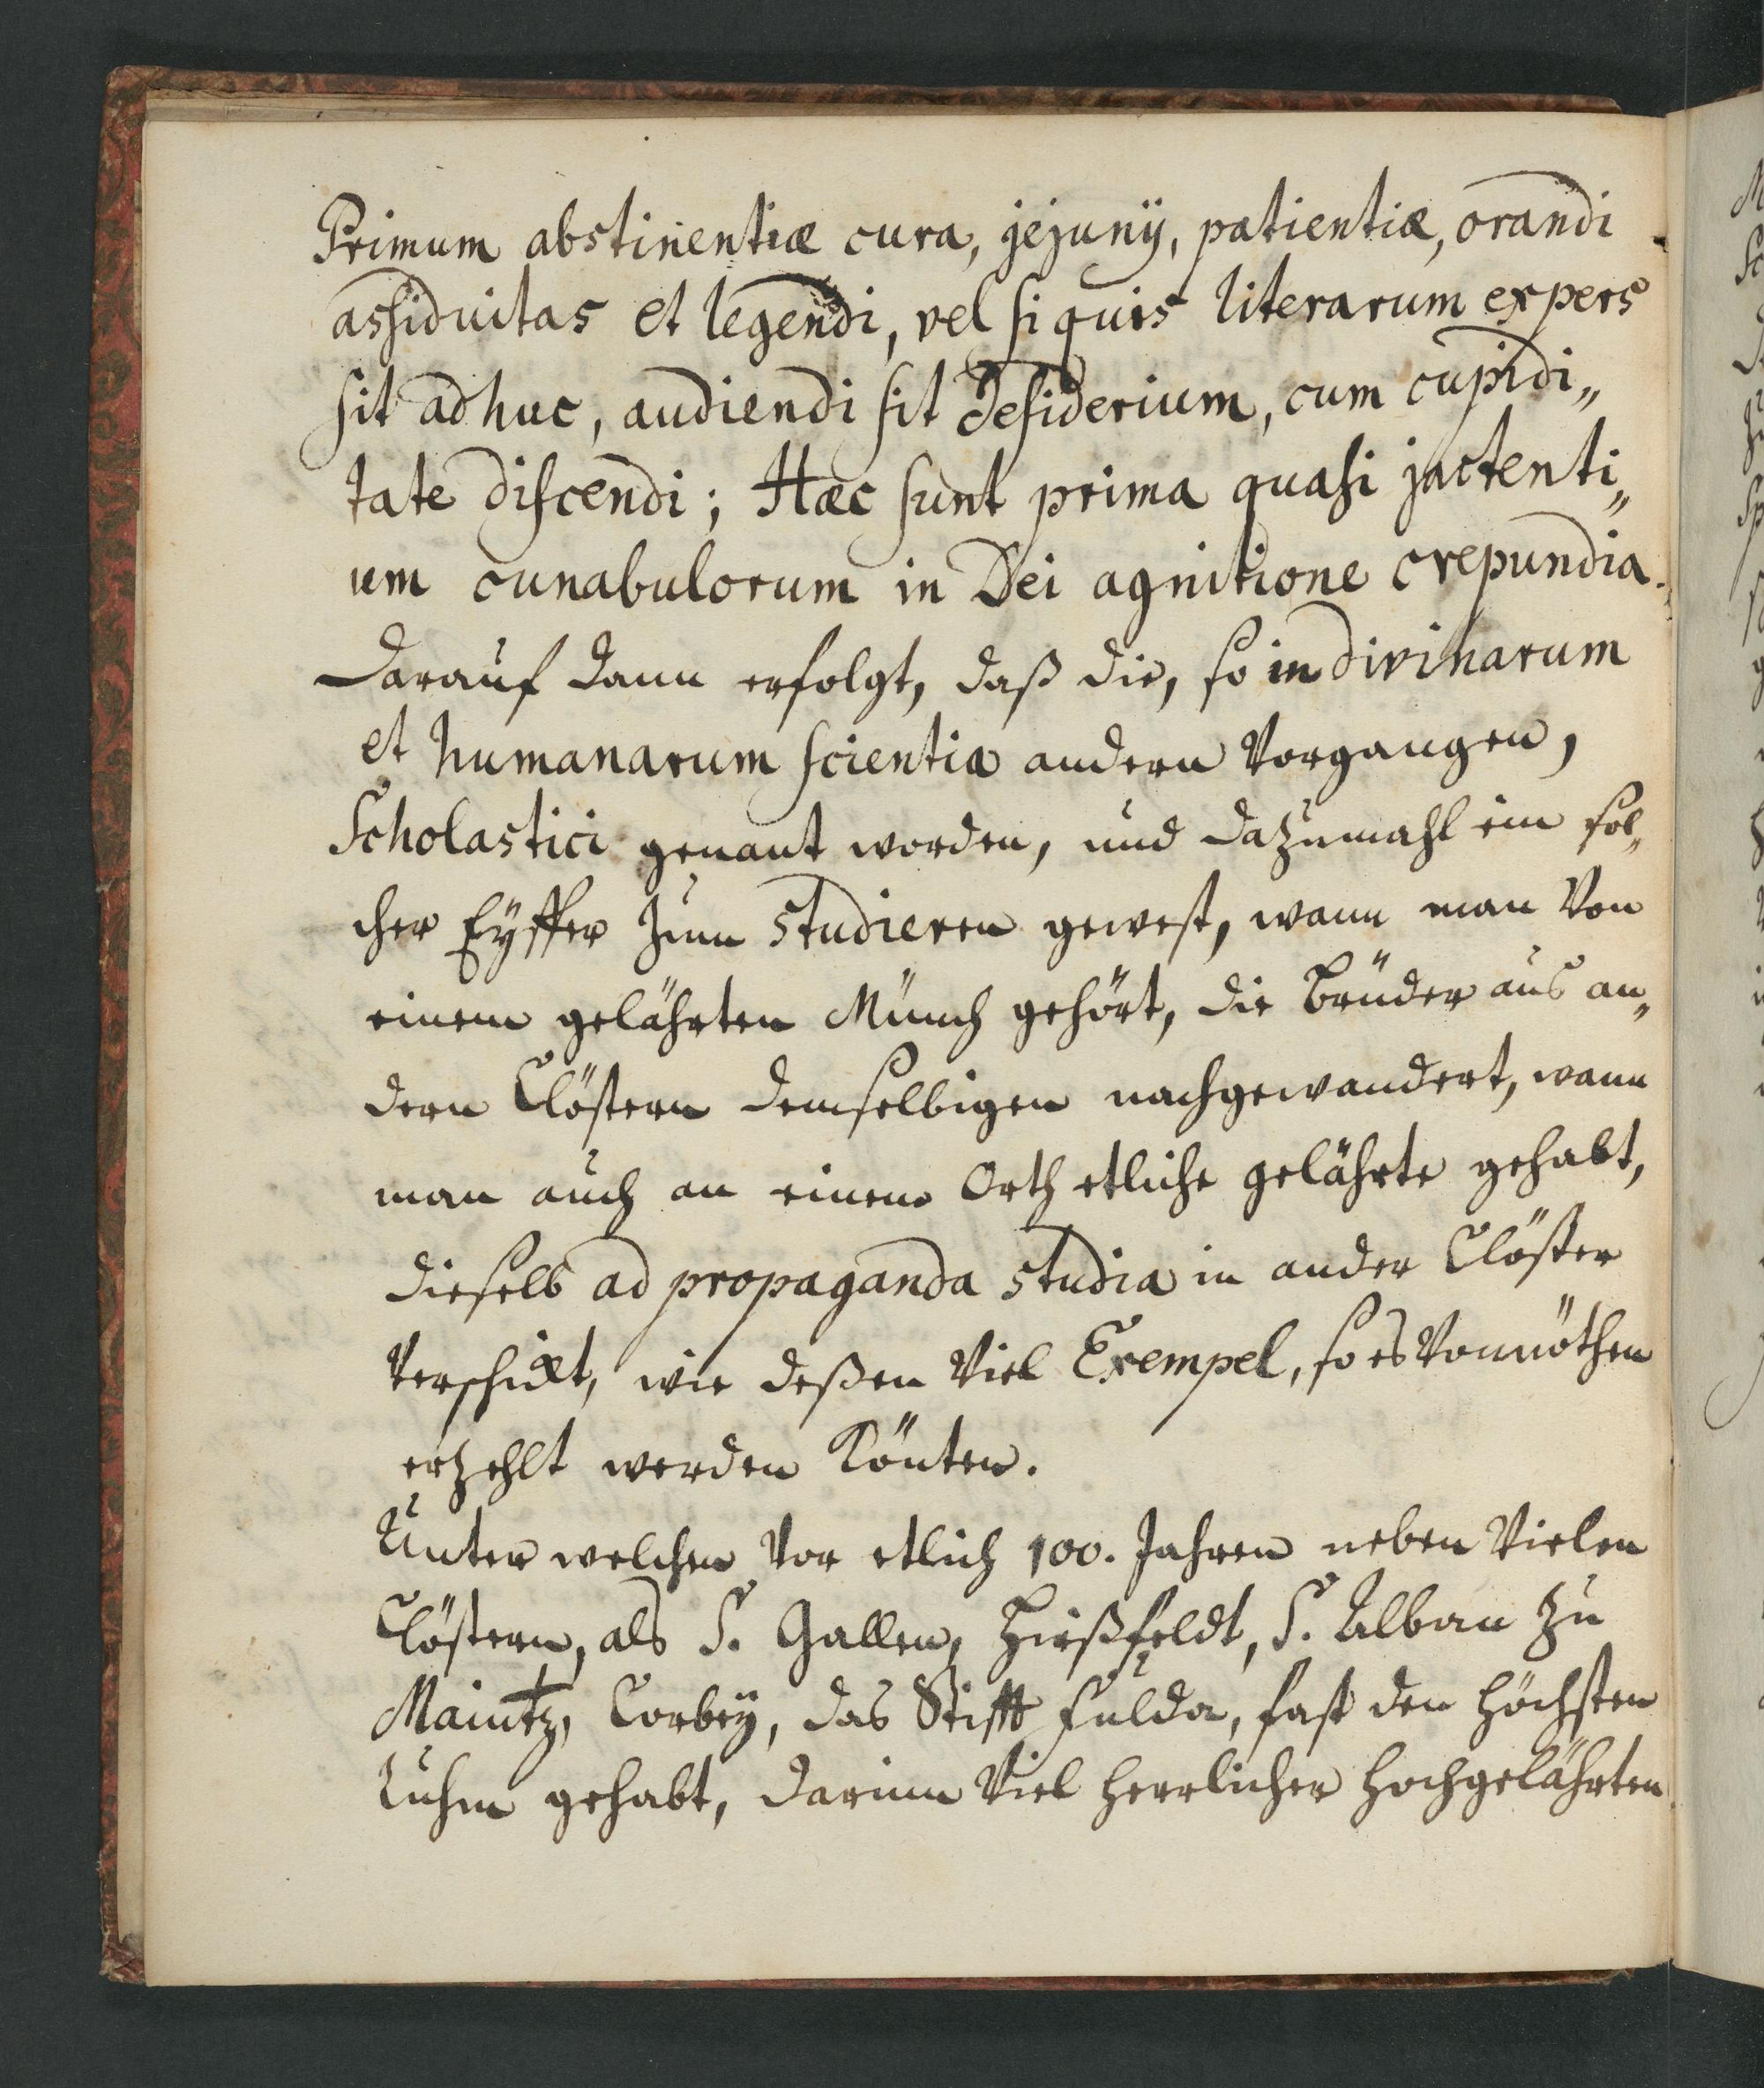 Primum abstinentiæ cura, jejunÿ, patientiæ, orandi
assiduitas et legendi, vel si quis literarum expers
sit adhuc, audiendi sit desiderium, cum cupidi„
tate discendi; Hæc sunt prima quasi jactenti„
um cunabulorum in Dei agnitione crepundia.
Darauf dann erfolgt, daß die, so in divinarum
et humanarum scientia andern Vorgangen,
Scholastici genant worden, und dazumahl ein sol„
cher Eyffer zum studieren gewest, wann man Von
einem gelährten Münch gehört, die Brüder aus an„
dern Clöstern demselbigen nachgewandert, wann
man auch an einem Orth etliche gelährte gehabt,
dieselb ad propaganda studia in ander Clöster
Verschikt, wie deßen Viel Exempel, so es Vonnöthen
erzehlt werden könten.
Unter welchen Vor etlich 100. Jahren neben Vielen
Clöstern, als S. Gallen, Hirßfeldt, S. Alban zu
Maintz, Corbeÿ, das Stifft Fulda, fast den höchsten
Ruhm gehabt, darinn Viel herrlicher hochgelährten